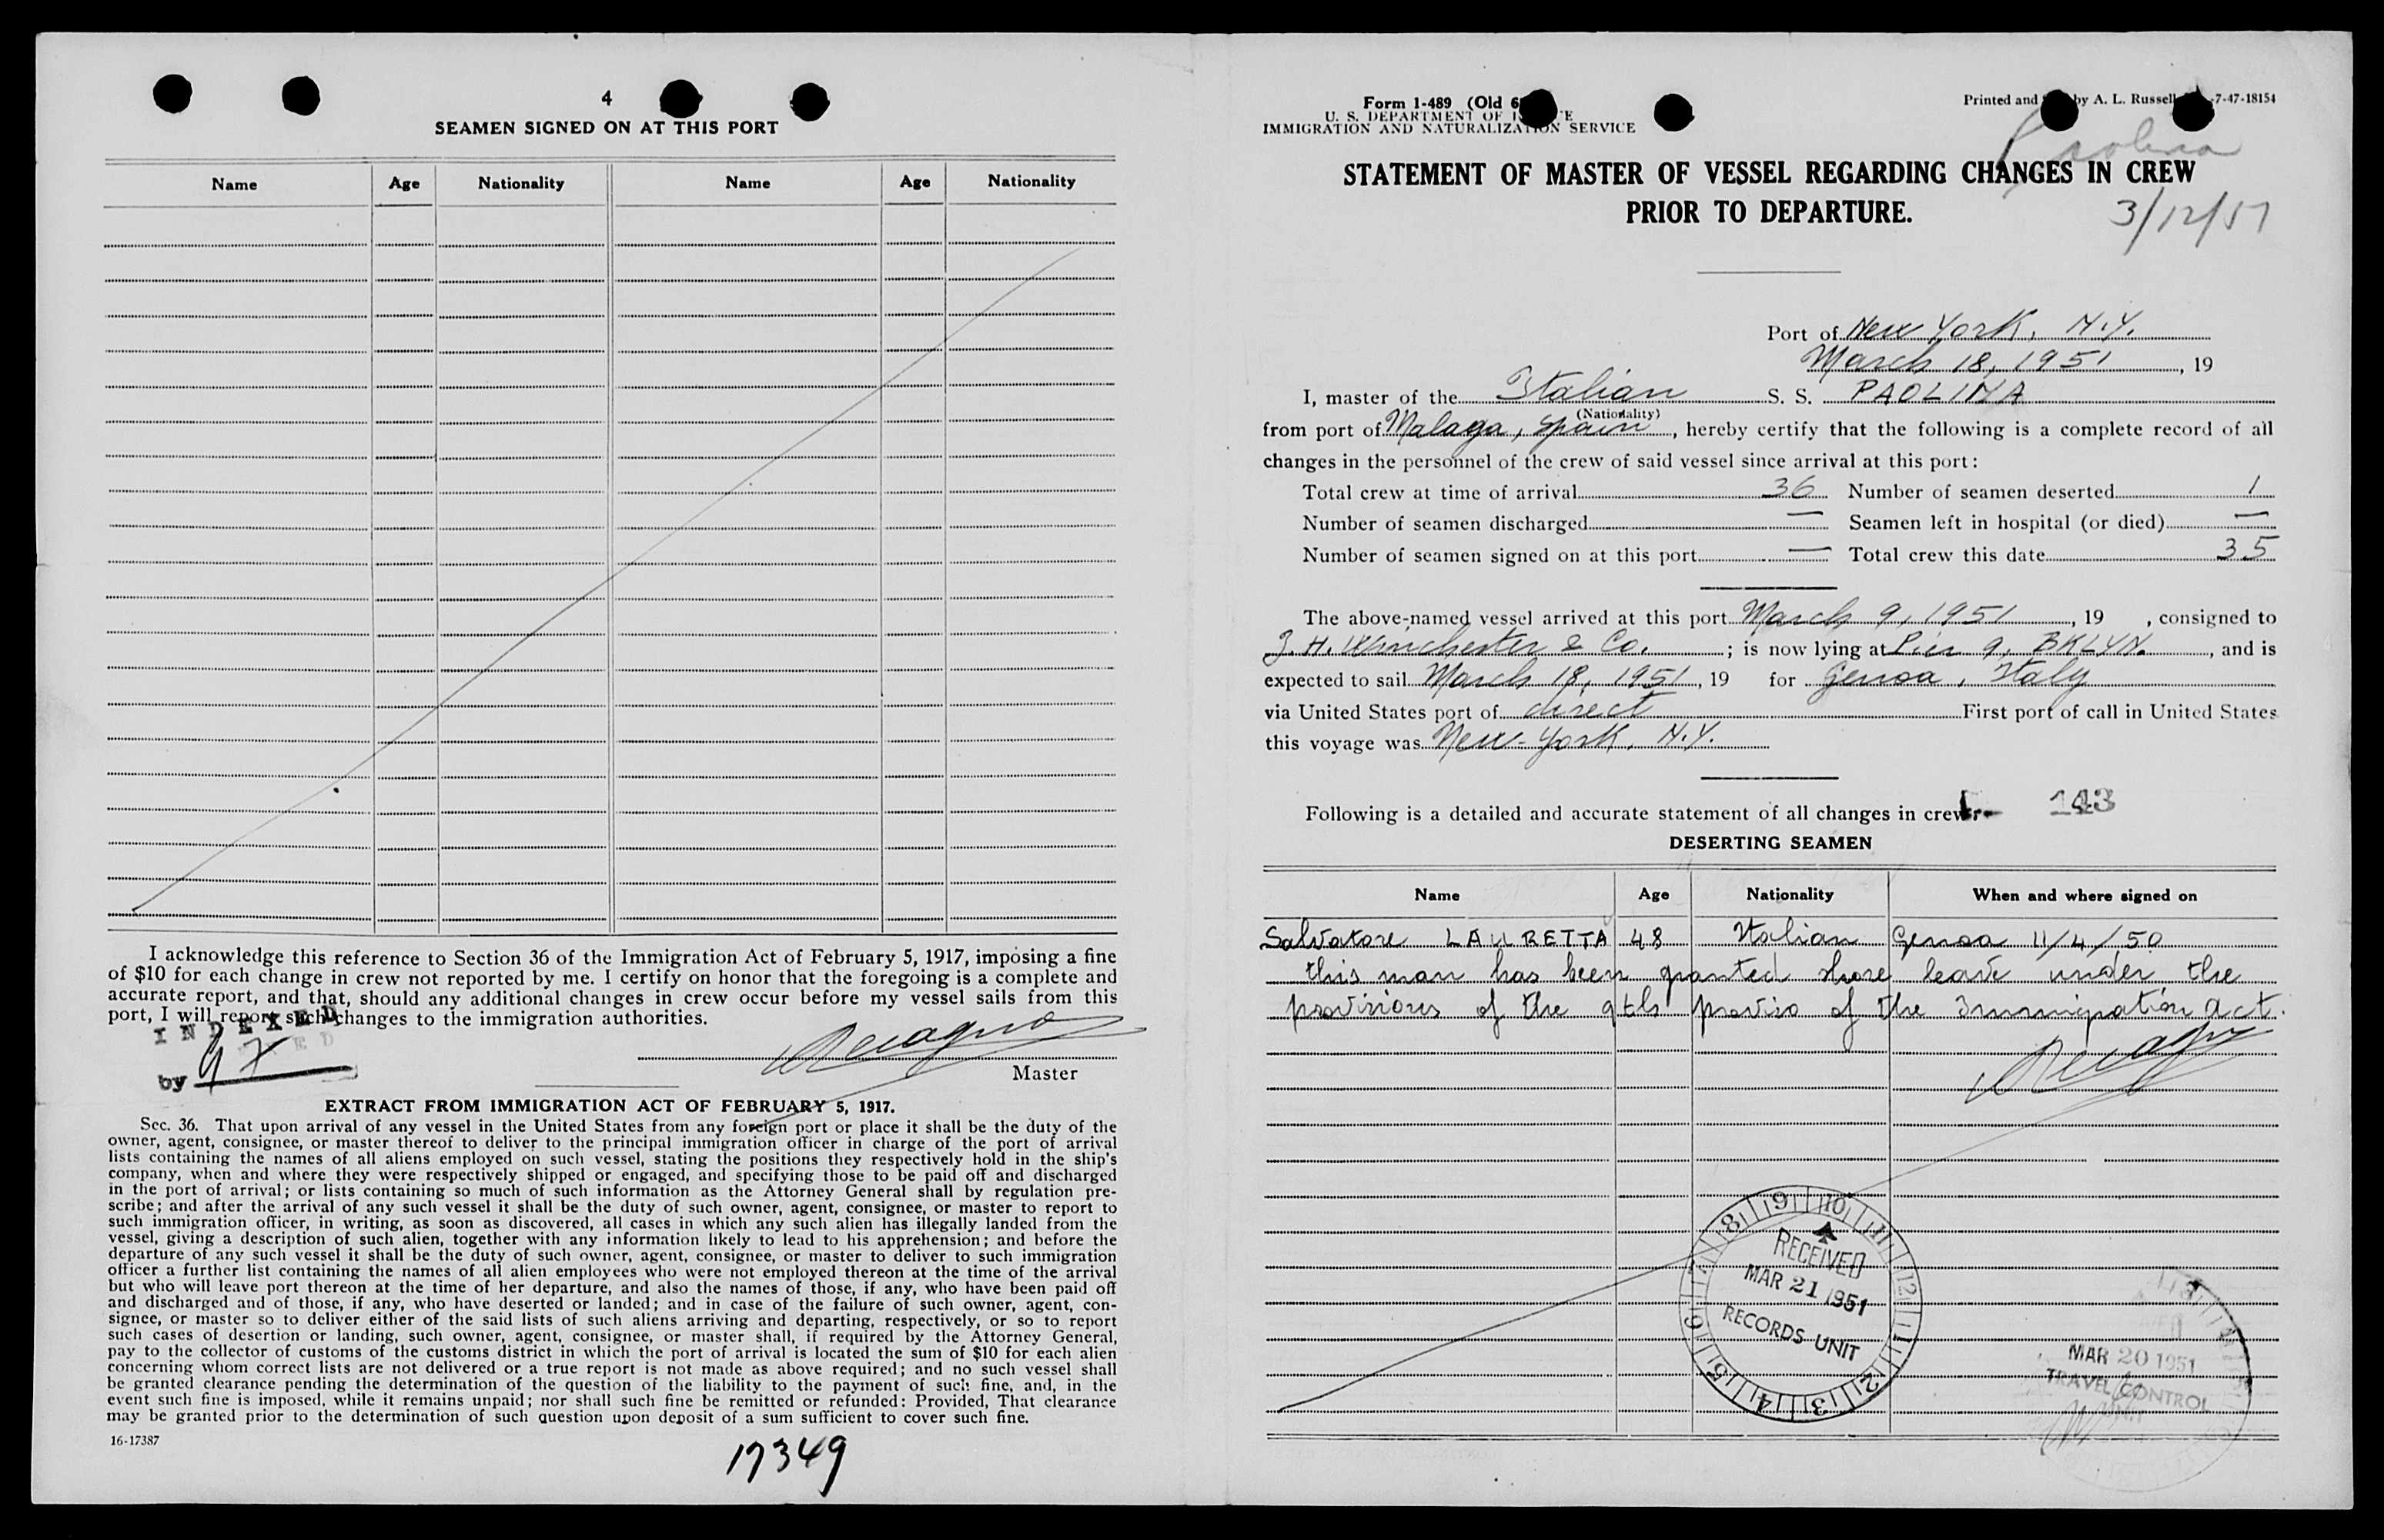 4
SEAMEN SIGNED ON AT THIS PORT
Name Age Nationality Name Age Nationality
I acknowledge this reference to Section 36 of the Immigration Act of February 5, 1917, imposing a fine
of $10 for each change in crew not reported by me. I certify on honor that the foregoing is a complete and
accurate report, and that, should any additional changes in crew occur before my vessel sails from this
port, I will report such changes to the immigration authorities.
INDEXED
by
Master
EXTRACT FROM IMMIGRATION ACT OF FEBRUARY 5, 1917.
Sec. 36. That upon arrival of any vessel in the United States from any foreign port or place it shall be the duty of the
owner, agent, consignee, or master thereof to deliver to the principal immigration officer in charge of the port of arrival
lists containing the names of all aliens employed on such vessel, stating the positions they respectively hold in the ship's
company, when and where they were respectively shipped or engaged, and specifying those to be paid off and discharged
in the port of arrival; or lists containing so much of such information as the Attorney General shall by regulation pre-
scribe; and after the arrival of any such vessel it shall be the duty of such owner, agent, consignee, or master to report to
such immigration officer, in writing, as soon as discovered, all cases in which any such alien has illegally landed from the
vessel, giving a description of such alien, together with any information likely to lead to his apprehension; and before the
departure of any such vessel it shall be the duty of such owner, agent, consignee, or master to deliver to such immigration
officer a further list containing the names of all alien employees who were not employed thereon at the time of the arrival
but who will leave port thereon at the time of her departure, and also the names of those, if any, who have been paid off
and discharged and of those, if any, who have deserted or landed; and in case of the failure of such owner, agent, con-
signee, or master so to deliver either of the said lists of such aliens arriving and departing, respectively, or so to report
such cases of desertion or landing, such owner, agent, consignee, or master shall, if required by the Attorney General,
pay to the collector of customs of the customs district in which the port of arrival is located the sum of $10 for each alien
concerning whom correct lists are not delivered or a true report is not made as above required; and no such vessel shall
be granted clearance pending the determination of the question of the liability to the payment of such fine, and, in the
event such fine is imposed, while it remains unpaid; nor shall such fine be remitted or refunded: Provided, That clearance
may be granted prior to the determination of such question upon deposit of a sum sufficient to cover such fine.
16-17387
17349
Form 1-489 (Old 6
U. S. DEPARTMENT OF
IMMIGRATION AND NATURALIZATION SERVICE
Printed and by A. L. Russell -7-47-18154
Paolina
STATEMENT OF MASTER OF VESSEL REGARDING CHANGES IN CREW
PRIOR TO DEPARTURE.
3/12/51
Port of New York, N.Y.
March 18, 1951, 19
I, master of the Italian S. S. PAOLINA
(Nationality)
from port of Malaga, Spain, hereby certify that the following is a complete record of all
changes in the personnel of the crew of said vessel since arrival at this port:
Total crew at time of arrival 36 Number of seamen deserted 1
Number of seamen discharged — Seamen left in hospital (or died) —
Number of seamen signed on at this port — Total crew this date 35
The above-named vessel arrived at this port March 9, 1951, 19 , consigned to
J. H. Winchester & Co. ; is now lying at Pier 9, BKLYN. , and is
expected to sail March 18, 1951, 19 for Genoa, Italy
via United States port of direct First port of call in United States
this voyage was New-York, N.Y.
Following is a detailed and accurate statement of all changes in crew:-
143
DESERTING SEAMEN
Name Age Nationality When and where signed on
Salvatore LAURETTA 48 Italian Genoa 11/4/50
this man has been granted shore leave under the
provisions of the 9th proviso of the Immigration Act.
9 10 11 12 1 2 3 4 5 6 7 8
RECEIVED
MAR 21 1951
RECORDS UNIT
MAR 20 1951
TRAVEL CONTROL
UNIT